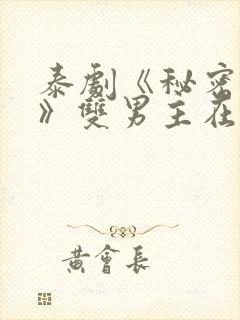 泰劇《秘密
》雙男主在
黃會長